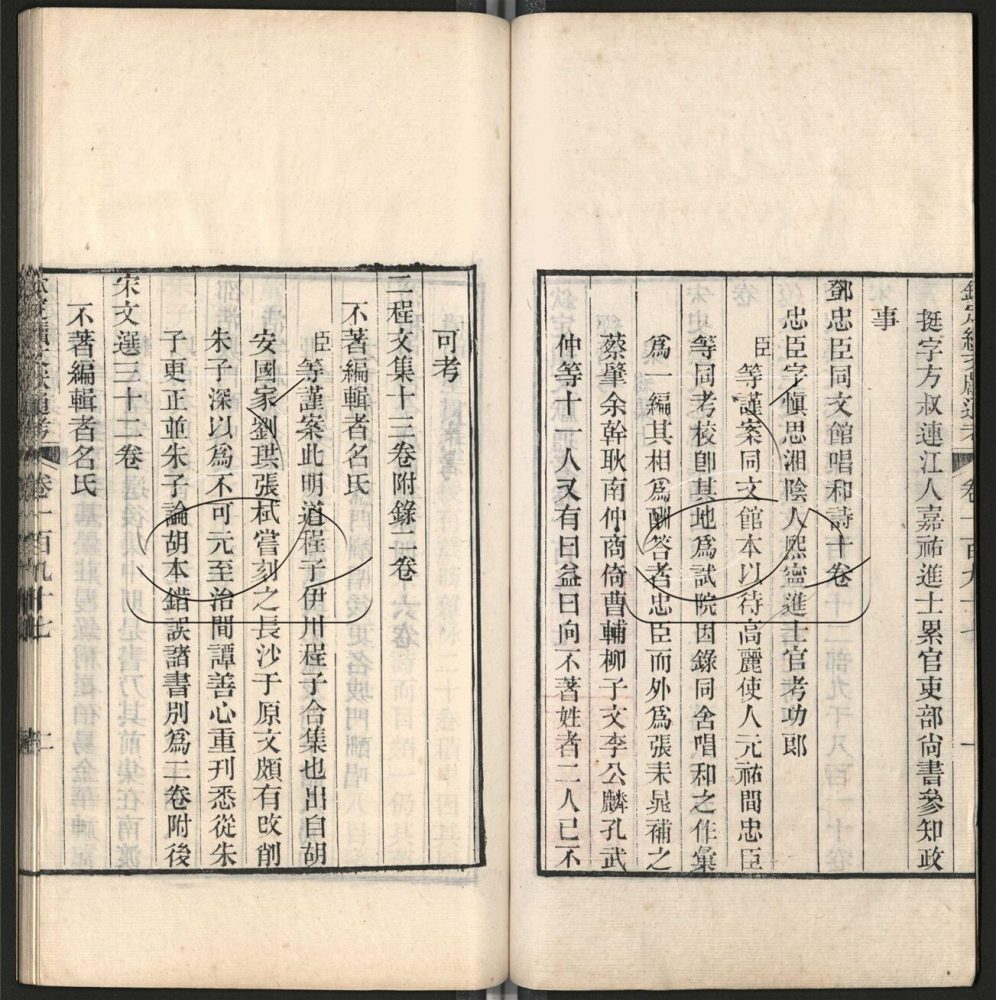 挺字方叔連江人嘉祐進士累官吏部尚書參知政
事
鄧忠臣同文館唱和詩十卷
忠臣字愼思湘陰人熙寧進士官考功郎
臣等謹案同文館本以待高麗使人元祐間忠臣
等同考校卽其地爲試院因錄同舍唱和之作彙
爲一編其相爲酬答者忠臣而外爲張耒晁補之
蔡肇余幹耿南仲商倚曹輔柳子文李公麟孔武
仲等十一人又有曰益曰向不著姓者二人已不
可考
二程文集十三卷附錄二卷
不著編輯者名氏
臣等謹案此明道程子伊川程子合集也出自胡
安國家劉珙張栻嘗刻之長沙于原文頗有改削
朱子深以爲不可元至治間譚善心重刊悉從朱
子更正並朱子論胡本錯誤諸書別爲二卷附後
宋文選三十二卷
不著編輯者名氏
卷一百九十七 二